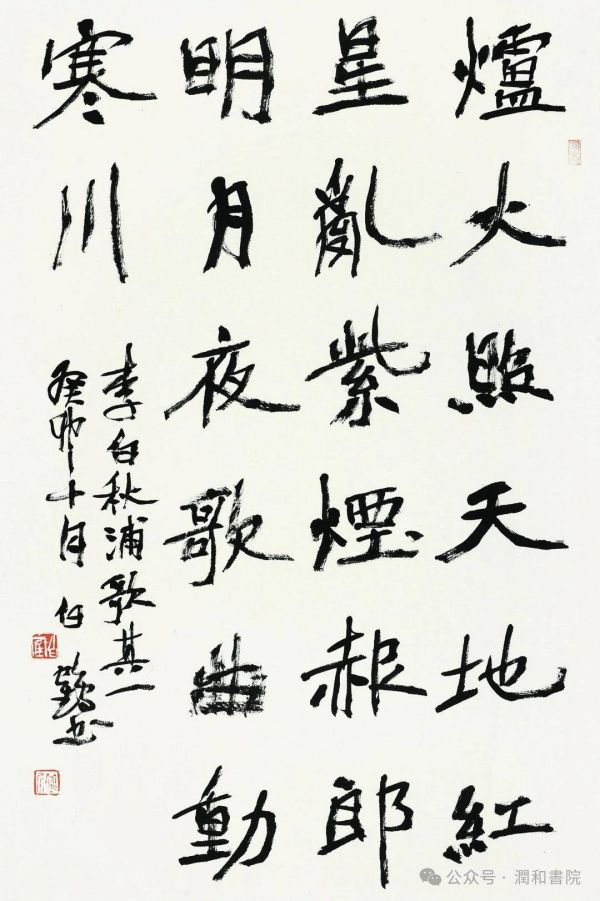 爐火照天地紅
星亂紫煙赧郎
明月夜歌曲動
寒川
李白秋浦歌其一
癸卯十月任书
公众号 · 潤和書院